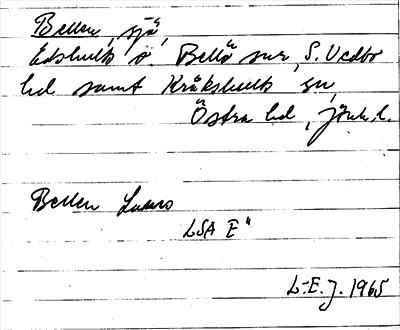 Bellen, sjö,
Edshults o. Bellö snr, S. Vedbo
hd samt Kråkshults sn,
Östra hd, Jönk. l.
Bellen
LSA E"
L-E. J. 1965